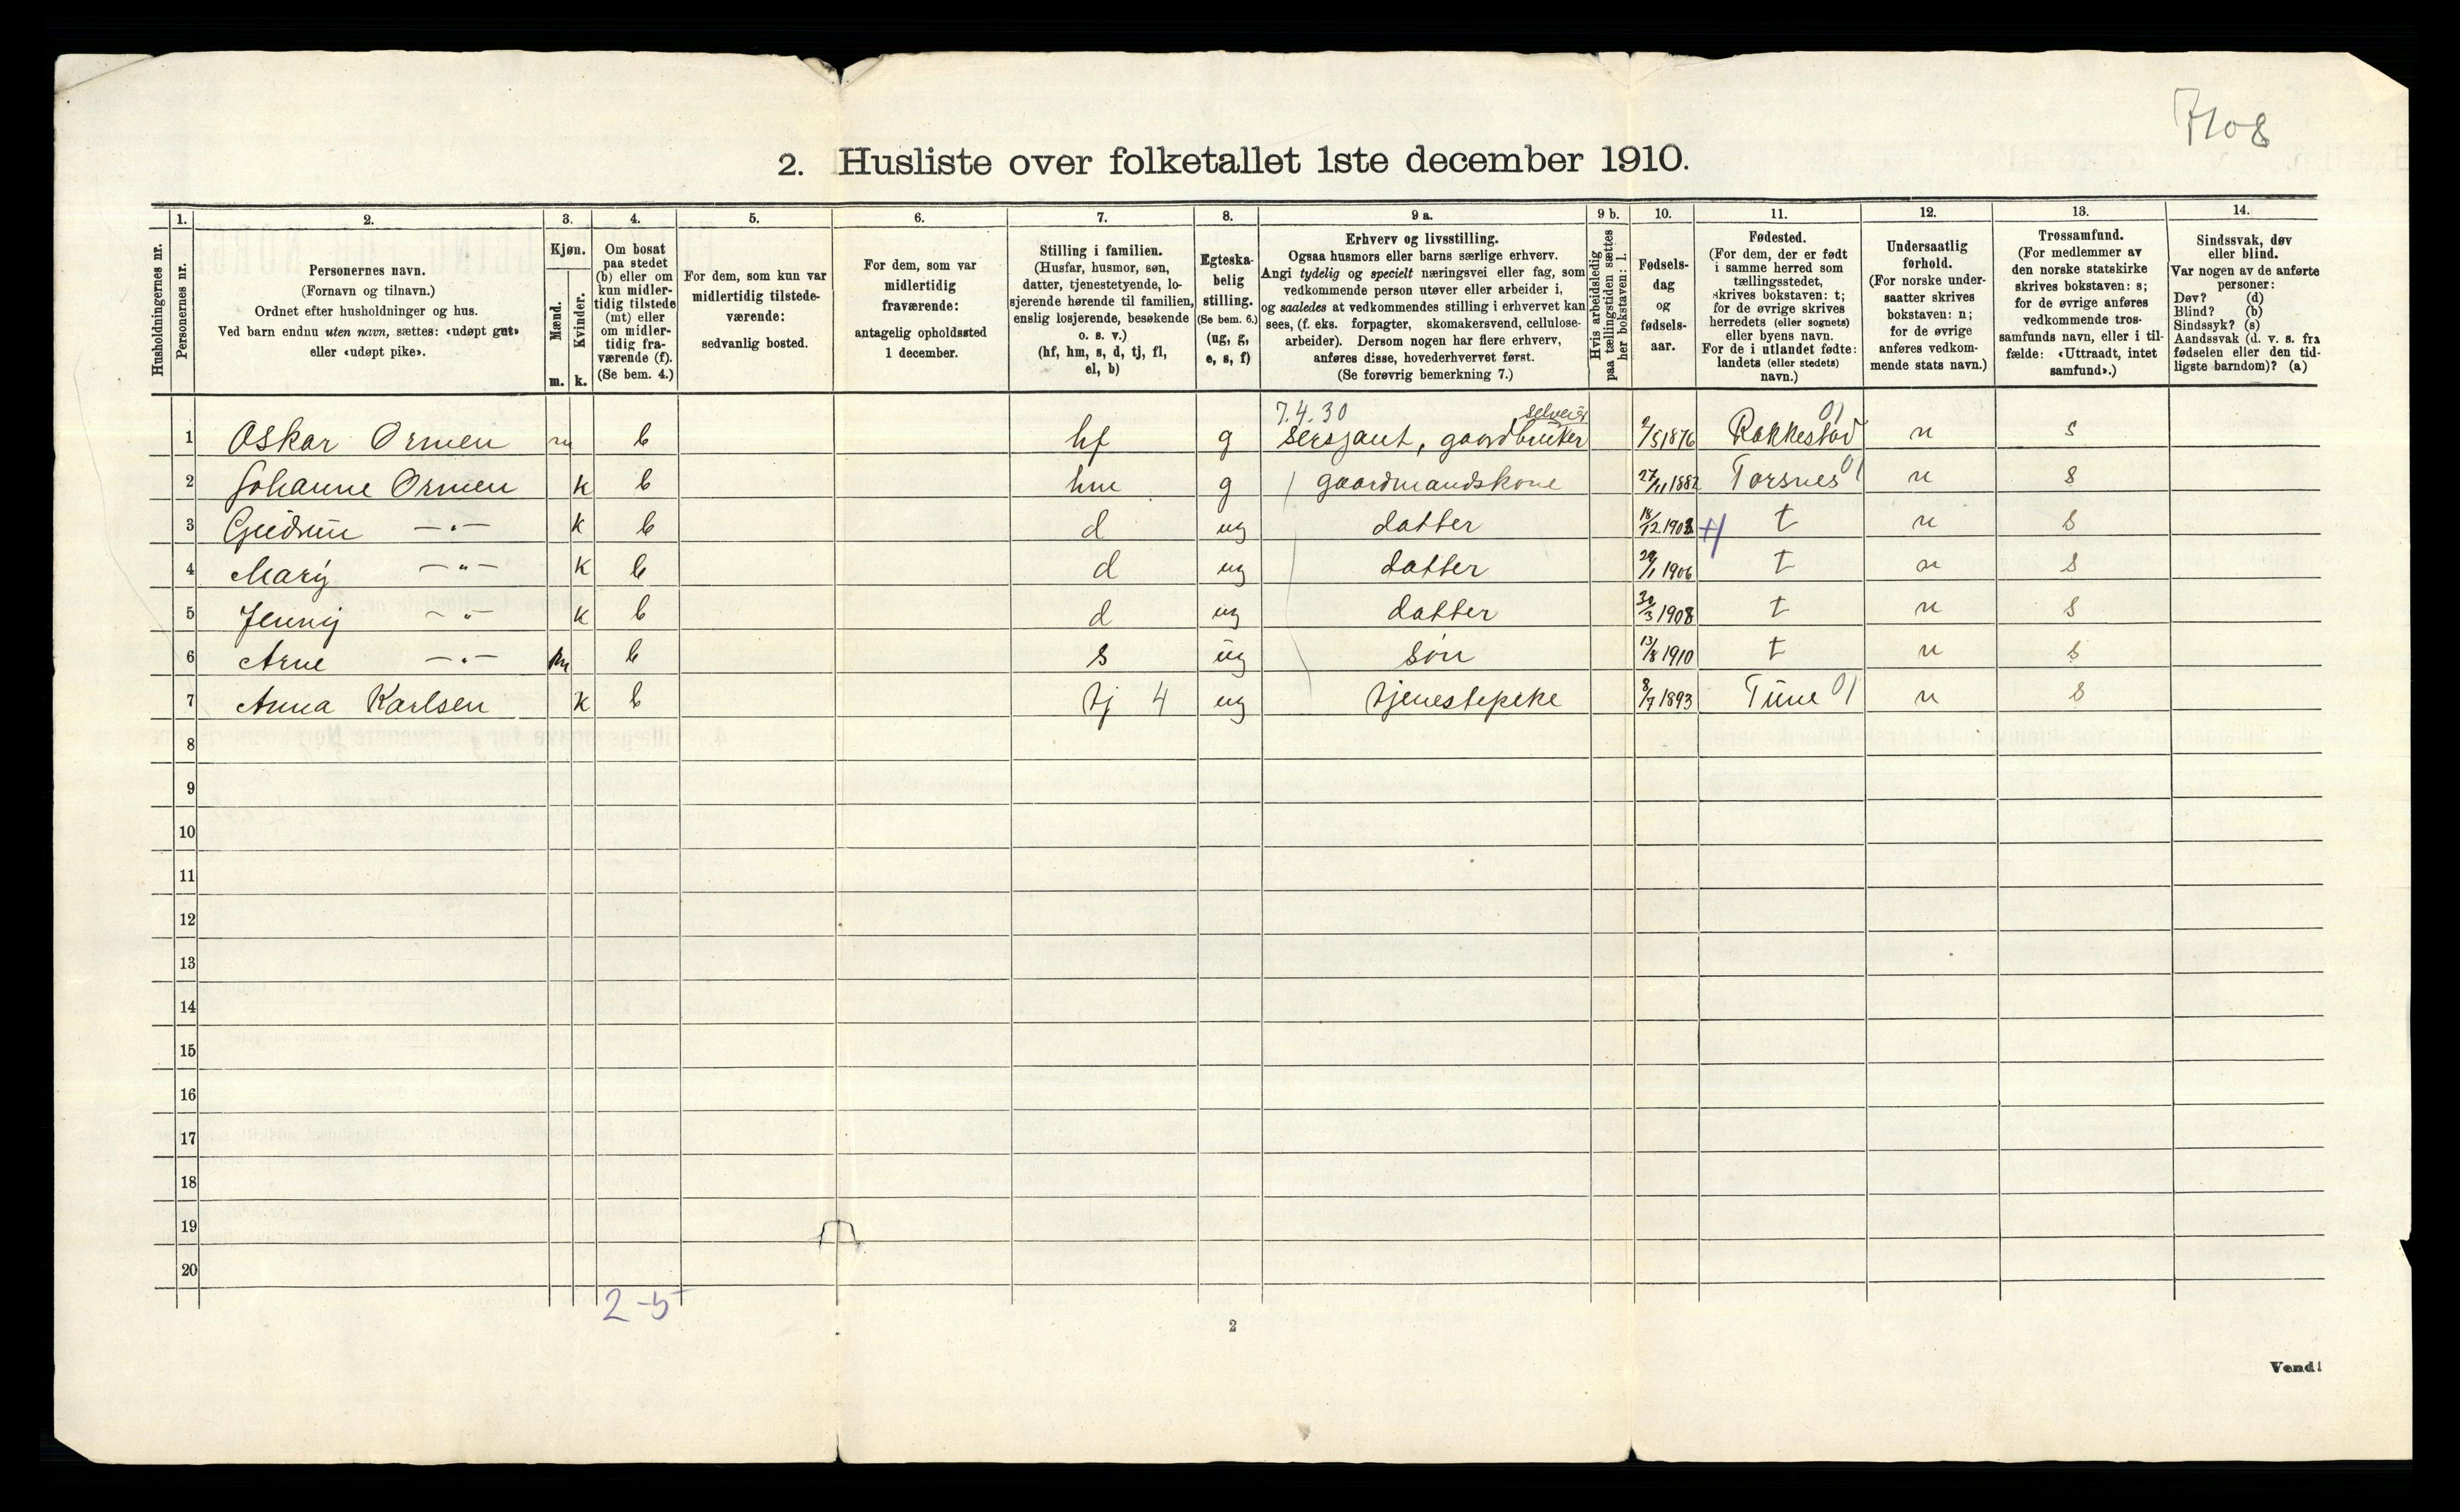 7108
2. Husliste over folketallet 1ste december 1910.
1. 2. 3. 4. 5. 6. 7. 8. 9 a. 9 b. 10. 11. 12. 13. 14.
Husholdningernes nr.
Personernes nr.
Personernes navn.
(Fornavn og tilnavn.)
Ordnet efter husholdninger og hus.
Ved barn endnu uten navn, sættes: «udøpt gut»
eller «udøpt pike».
Kjøn.
Mænd.
Kvinder.
m. k.
Om bosat
paa stedet
(b) eller om
kun midler-
tidig tilstede
(mt) eller
om midler-
tidig fra-
værende (f).
(Se bem. 4.)
For dem, som kun var
midlertidig tilstede-
værende:
sedvanlig bosted.
For dem, som var
midlertidig
fraværende:
antagelig opholdssted
1 december.
Stilling i familien.
(Husfar, husmor, søn,
datter, tjenestetyende, lo-
sjerende hørende til familien,
enslig losjerende, besøkende
o. s. v.)
(hf, hm, s, d, tj, fl,
el, b)
Egteska-
belig
stilling.
(Se bem. 6.)
(ug, g,
e, s, f)
Erhverv og livsstilling.
Ogsaa husmors eller barns særlige erhverv.
Angi tydelig og specielt næringsvei eller fag, som
vedkommende person utøver eller arbeider i,
og saaledes at vedkommendes stilling i erhvervet kan
sees, (f. eks. forpagter, skomakersvend, cellulose-
arbeider). Dersom nogen har flere erhverv,
anføres disse, hovederhvervet først.
(Se forøvrig bemerkning 7.)
Hvis arbeidsledig
paa tællingstiden sættes
her bokstaven: l.
Fødsels-
dag
og
fødsels-
aar.
Fødested.
(For dem, der er født
i samme herred som
tællingsstedet,
skrives bokstaven: t;
for de øvrige skrives
herredets (eller sognets)
eller byens navn.
For de i utlandet fødte:
landets (eller stedets)
navn.)
Undersaatlig
forhold.
(For norske under-
saatter skrives
bokstaven: n;
for de øvrige
anføres vedkom-
mende stats navn.)
Trossamfund.
(For medlemmer av
den norske statskirke
skrives bokstaven: s;
for de øvrige anføres
vedkommende tros-
samfunds navn, eller i til-
fælde: «Uttraadt, intet
samfund».)
Sindssvak, døv
eller blind.
Var nogen av de anførte
personer:
Døv? (d)
Blind? (b)
Sindssyk? (s)
Aandssvak (d. v. s. fra
fødselen eller den tid-
ligste barndom)? (a)
7.4.30 selveier 01
1 Oskar Ormen m b hf g Sersjant, gaardbruker 9/5 1876 Rakkestad n s
2 Johanne Ormen k b hm g gaardmandskone 27/11 1882 Torsnes 01 n s
3 Gudrun —"— k b d ug datter 18/12 1903 t n s
4 Mary —"— k b d ug datter 29/1 1906 t n s
5 Jenny —"— k b d ug datter 30/3 1908 t n s
6 Arne —"— m b s ug søn 13/8 1910 t n s
7 Anna Karlsen k b tj 4 ug tjenestepike 8/7 1893 Tune 01 n s
8
9
10
11
12
13
14
15
16
17
18
19
20
2-5
2
Vend!